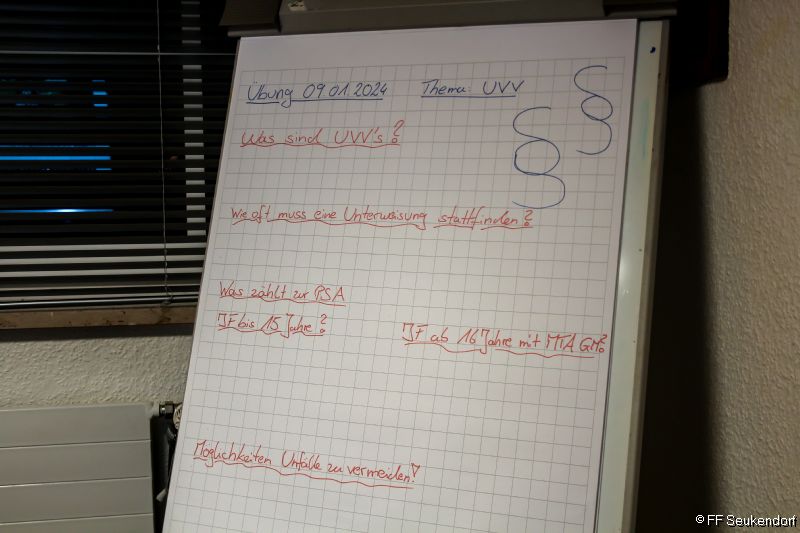 Übung 09.01.2024 Thema: UVV
§ §
Was sind UVV's?
Wie oft muss eine Unterweisung stattfinden?
Was zählt zur PSA
JF bis 15 Jahre?
JF ab 16 Jahre mit MTA GM?
Möglichkeiten Unfälle zu vermeiden!
© FF Seukendorf